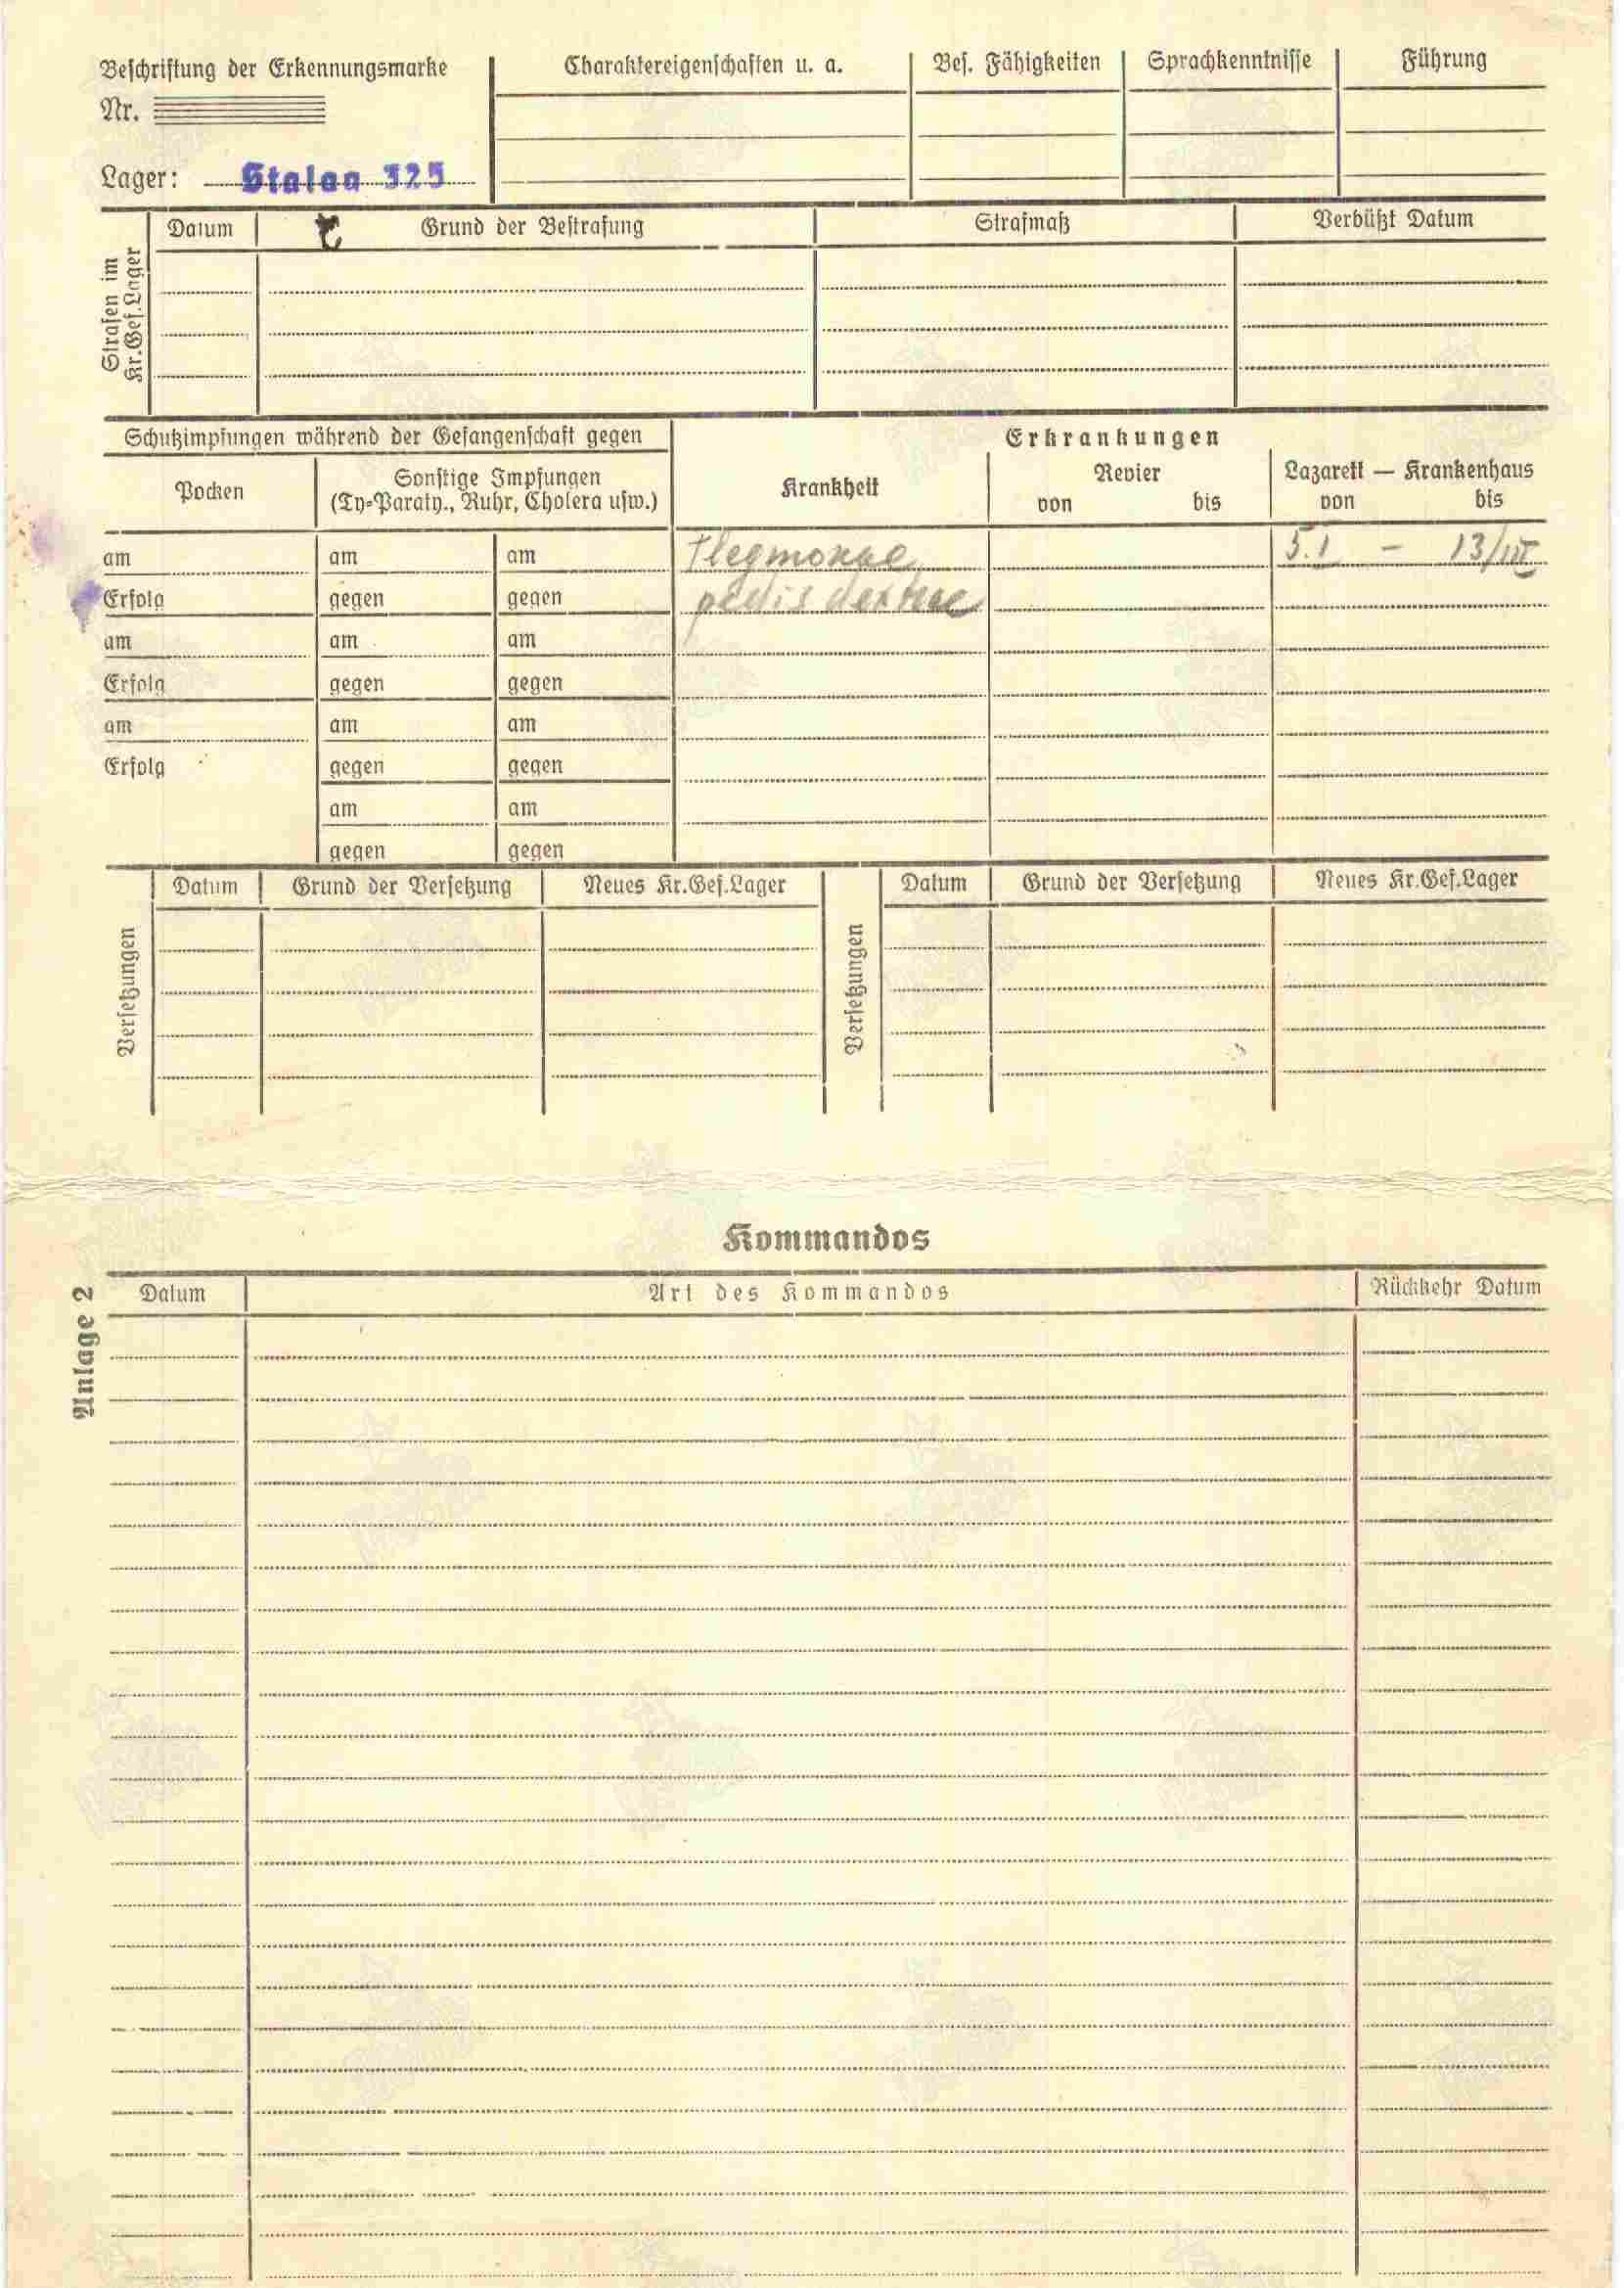 Beschriftung der Erkennungsmarke
Nr.
Lager: Stalag 325
Charaktereigenschaften u. a.
Bes. Fähigkeiten
Sprachkenntnisse
Führung
Strafen im
Kr.Gef.Lager
Datum
Grund der Bestrafung
Strafmaß
Verbüßt Datum
Schutzimpfungen während der Gefangenschaft gegen
Pocken
Sonstige Impfungen
(Ty=Paraty., Ruhr, Cholera usw.)
Erkrankungen
Krankheit
Revier
von bis
Lazarett — Krankenhaus
von bis
am am am Flegmonae 5.I - 13/III
Erfolg gegen gegen pedis dextrae
am am am
Erfolg gegen gegen
am am am
Erfolg gegen gegen
am am
gegen gegen
Versetzungen
Datum Grund der Versetzung Neues Kr.Gef.Lager
Versetzungen
Datum Grund der Versetzung Neues Kr.Gef.Lager
Kommandos
Anlage 2
Datum Art des Kommandos Rückkehr Datum